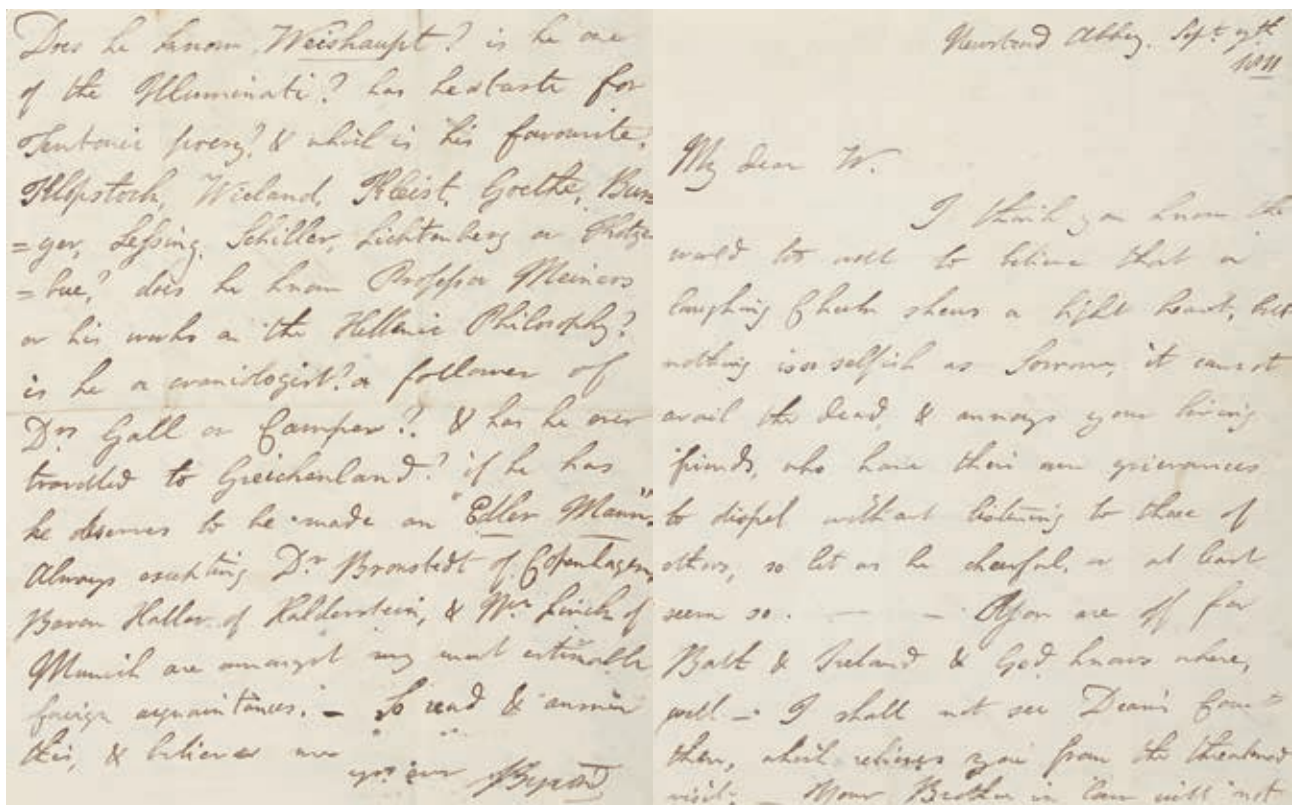 Does he know Weishaupt? is he one
of the Illuminati? has he a taste for
Teutonic poesy? & which is his favourite,
Klopstock, Wieland, Kleist, Goethe, Bur=
=ger, Lessing, Schiller, Lichtenberg or Kotze
=bue? does he know Professor Meiners
or his works on the Hellenic Philosophy?
is he a craniologist? a follower of
Drs Gall or Camper?. & has he ever
travelled to Greichenland? if he has
he deserves to be made an "Edler Mann".
Always excepting Dr Bronstedt of Copenhagen,
Baron Haller of Halderstein, & Mr Linckh of
Munich are amongst my most estimable
foreign acquaintances. — So read & answer
this, & believe me
yrs ever Byron
Newstead Abbey. Sept.
1811
My dear W.
I think you know the
world too well to believe that a
laughing Cheek shews a light heart, but
nothing is so selfish as Sorrow, it cannot
avail the dead, & annoys your living
friends, who have their own grievances
to dispel without listening to those of
others, so let us be cheerful, or at least
seem so. — — You are off for
& Ireland & God knows where,
well — I shall not see Dean's Court
then, which relieves you from the threatened
visit. — Your Brother in law will not